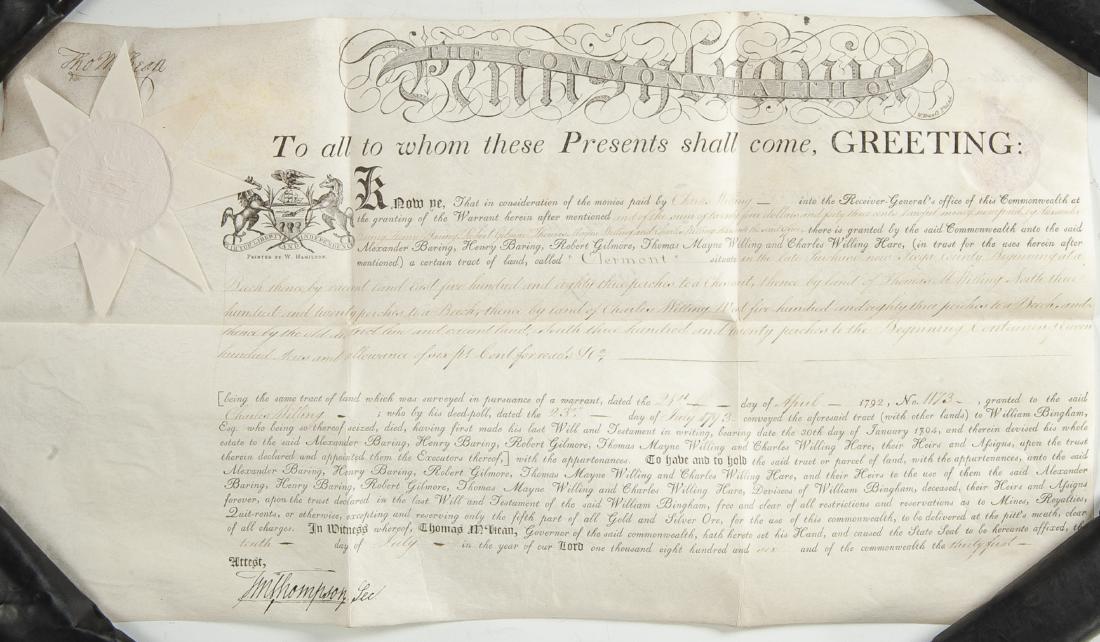 Tho M:Kean
THE COMMONWEALTH OF
Pennsylvania
To all to whom these Presents shall come, GREETING:
Know ye, That in consideration of the monies paid by Charles Willing into the Receiver-General's office of this Commonwealth at
the granting of the Warrant herein after mentioned and of the sum of five dollars and fifty three cents lawful money paid by Alexander
Baring Henry Baring, Robert Gilmore Thomas Mayne Willing and Charles Willing Hare there is granted by the said Commonwealth unto the said
Alexander Baring, Henry Baring, Robert Gilmore, Thomas Mayne Willing and Charles Willing Hare, (in trust for the uses herein after
mentioned) a certain tract of land, called "Clermont" situate in the late now County Beginning at a
VIRTUE LIBERTY AND INDEPENDENCE
PRINTED BY W. HAMILTON.
Beech thence by vacant Land East five hundred and eighty three perches to a thence by land of Thomas M Willing North three
hundred and twenty perches to a Beech, thence by Land of Charles Willing West five hundred and eighty three perches to a Beech and
thence by the old district line and vacant land, South three hundred and twenty perches to the Beginning Containing Eleven
hundred Acres and allowance of six p Cent for roads &c
[being the same tract of land which was surveyed in pursuance of a warrant, dated the 28th day of April 1792, No. 1173, granted to the said
Charles Willing ; who by his deed-poll, dated the 23rd day of July 1793 conveyed the aforesaid tract (with other lands) to William Bingham,
Esq. who being so thereof seized, died, having first made his last Will and Testament in writing, bearing date the 30th day of January 1804, and therein devised his whole
estate to the said Alexander Baring, Henry Baring, Robert Gilmore, Thomas Mayne Willing and Charles Willing Hare, their Heirs and Assigns, upon the trust
therein declared and appointed them the Executors thereof,] with the appurtenances. To have and to hold the said tract or parcel of land, with the appurtenances, unto the said
Alexander Baring, Henry Baring, Robert Gilmore, Thomas Mayne Willing and Charles Willing Hare, and their Heirs to the use of them the said Alexander
Baring, Henry Baring, Robert Gilmore, Thomas Mayne Willing and Charles Willing Hare, Devisees of William Bingham, deceased, their Heirs and Assigns
forever, upon the trust declared in the last Will and Testament of the said William Bingham, free and clear of all restrictions and reservations as to Mines, Royalties,
Quit-rents, or otherwise, excepting and reserving only the fifth part of all Gold and Silver Ore, for the use of this commonwealth, to be delivered at the pit's mouth, clear
of all charges. In Witness whereof, Thomas M'Kean, Governor of the said commonwealth, hath hereto set his Hand, and caused the State Seal to be hereunto affixed, the
tenth day of July in the year of our Lord one thousand eight hundred and six and of the commonwealth the thirty first
Attest,
TmThompson Sec